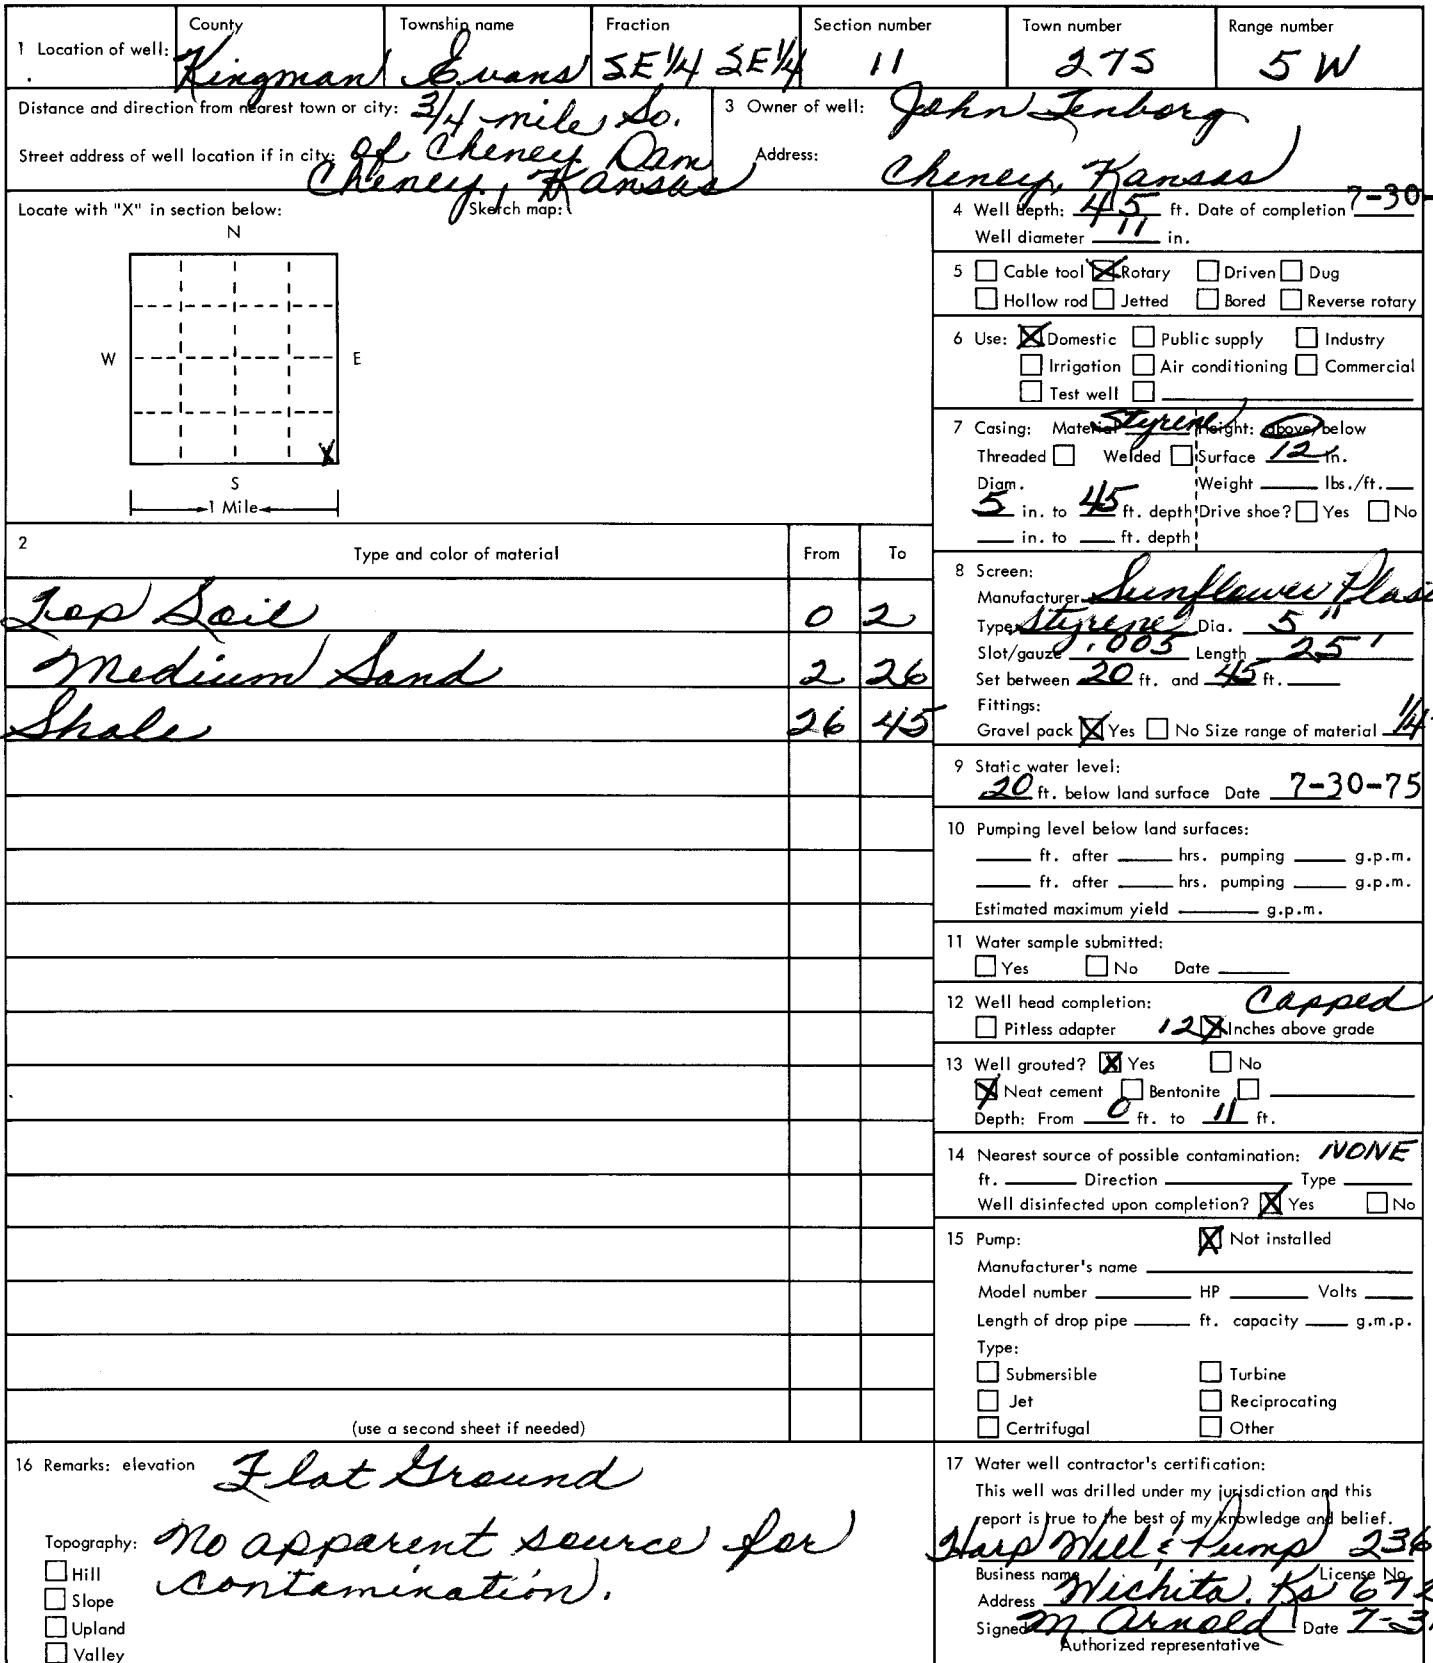 1 Location of well: County Township name Fraction Section number Town number Range number
Kingman Evans SE 1/4 SE 1/4 11 27S 5 W
Distance and direction from nearest town or city: 3/4 mile So.
Street address of well location if in city: of Cheney Dam
Cheney, Kansas
3 Owner of well: John Tenborg
Address: Cheney, Kansas
Locate with "X" in section below: Sketch map:
N
W E
X
S
1 Mile
2 Type and color of material From To
Top Soil 0 2
Medium Sand 2 26
Shale 26 45
(use a second sheet if needed)
4 Well depth: 45 ft. Date of completion 7-30-
Well diameter 11 in.
5 ☐ Cable tool ☒ Rotary ☐ Driven ☐ Dug
☐ Hollow rod ☐ Jetted ☐ Bored ☐ Reverse rotary
6 Use: ☒ Domestic ☐ Public supply ☐ Industry
☐ Irrigation ☐ Air conditioning ☐ Commercial
☐ Test well ☐
7 Casing: Material Styrene Height: above/below
Threaded ☐ Welded ☐ Surface 12 in.
Diam. Weight ____ lbs./ft. ____
5 in. to 45 ft. depth Drive shoe? ☐ Yes ☐ No
____ in. to ____ ft. depth
8 Screen:
Manufacturer Sunflower Plas
Type Styrene Dia. 5"
Slot/gauze .005 Length 25'
Set between 20 ft. and 45 ft. ____
Fittings:
Gravel pack ☒ Yes ☐ No Size range of material 1/4
9 Static water level:
20 ft. below land surface Date 7-30-75
10 Pumping level below land surfaces:
____ ft. after ____ hrs. pumping ____ g.p.m.
____ ft. after ____ hrs. pumping ____ g.p.m.
Estimated maximum yield ____ g.p.m.
11 Water sample submitted:
☐ Yes ☐ No Date ____
12 Well head completion: Capped
☐ Pitless adapter 12 ☒ Inches above grade
13 Well grouted? ☒ Yes ☐ No
☒ Neat cement ☐ Bentonite ☐ ____
Depth: From 0 ft. to 11 ft.
14 Nearest source of possible contamination: NONE
ft. ____ Direction ____ Type ____
Well disinfected upon completion? ☒ Yes ☐ No
15 Pump: ☒ Not installed
Manufacturer's name ____
Model number ____ HP ____ Volts ____
Length of drop pipe ____ ft. capacity ____ g.m.p.
Type:
☐ Submersible ☐ Turbine
☐ Jet ☐ Reciprocating
☐ Certrifugal ☐ Other
16 Remarks: elevation Flat Ground
Topography: No apparent source for
contamination.
☐ Hill
☐ Slope
☐ Upland
☐ Valley
17 Water well contractor's certification:
This well was drilled under my jurisdiction and this
report is true to the best of my knowledge and belief.
Harp Well & Pump 236
Business name License No.
Address Wichita, Ks 672
Signed M. Arnold Date 7-3
Authorized representative